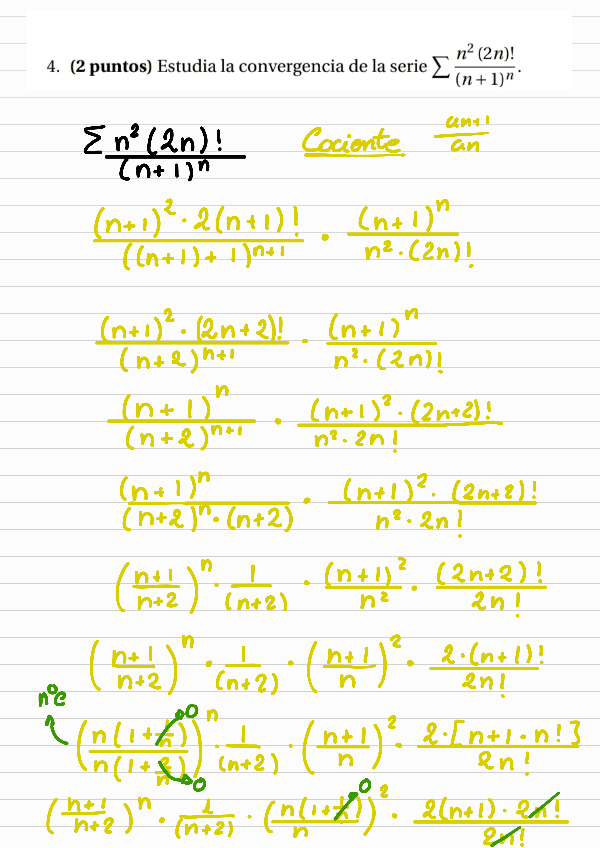 4. (2 puntos) Estudia la convergencia de la serie ∑ n² (2n)! / (n+1)ⁿ.
Σ n² (2n)! / (n+1)ⁿ   Cociente   an+1 / an
(n+1)² · 2(n+1)! / ((n+1)+1)ⁿ⁺¹ · (n+1)ⁿ / n² · (2n)!
(n+1)² · (2n+2)! / (n+2)ⁿ⁺¹ · (n+1)ⁿ / n² · (2n)!
(n+1)ⁿ / (n+2)ⁿ⁺¹ · (n+1)² · (2n+2)! / n² · 2n!
(n+1)ⁿ / (n+2)ⁿ · (n+2) · (n+1)² · (2n+2)! / n² · 2n!
((n+1)/(n+2))ⁿ · 1/(n+2) · (n+1)²/n² · (2n+2)!/2n!
((n+1)/(n+2))ⁿ · 1/(n+2) · ((n+1)/n)² · 2·(n+1)!/2n!
nºe
(n(1+1/n)→0 / n(1+2/n)→0)ⁿ · 1/(n+2) · ((n+1)/n)² · 2·[n+1·n!]/2n!
((n+1)/(n+2))ⁿ · 1/(n+2) · (n(1+1/n)→0 / n)² · 2(n+1)·2n!/2n!